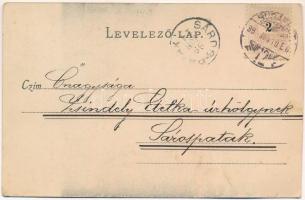 LEVELEZŐ-LAP.
SÁROS
2
Czím Őnagysága
Zsindely Etelka úrhölgynek
Sárospatak.